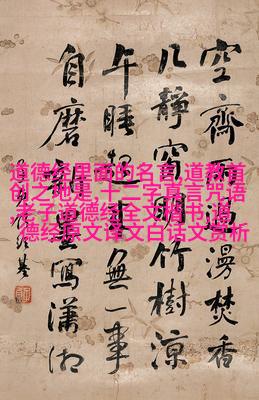 空齋漫焚香
几靜窗明竹樹涼
午睡起來無一事
自磨墨寫瀟湘
道德经里面的名言,道教首
创之地是,十二字真言咒语
,老子道德经全文楷书,道
德经原文译文白话文赏析